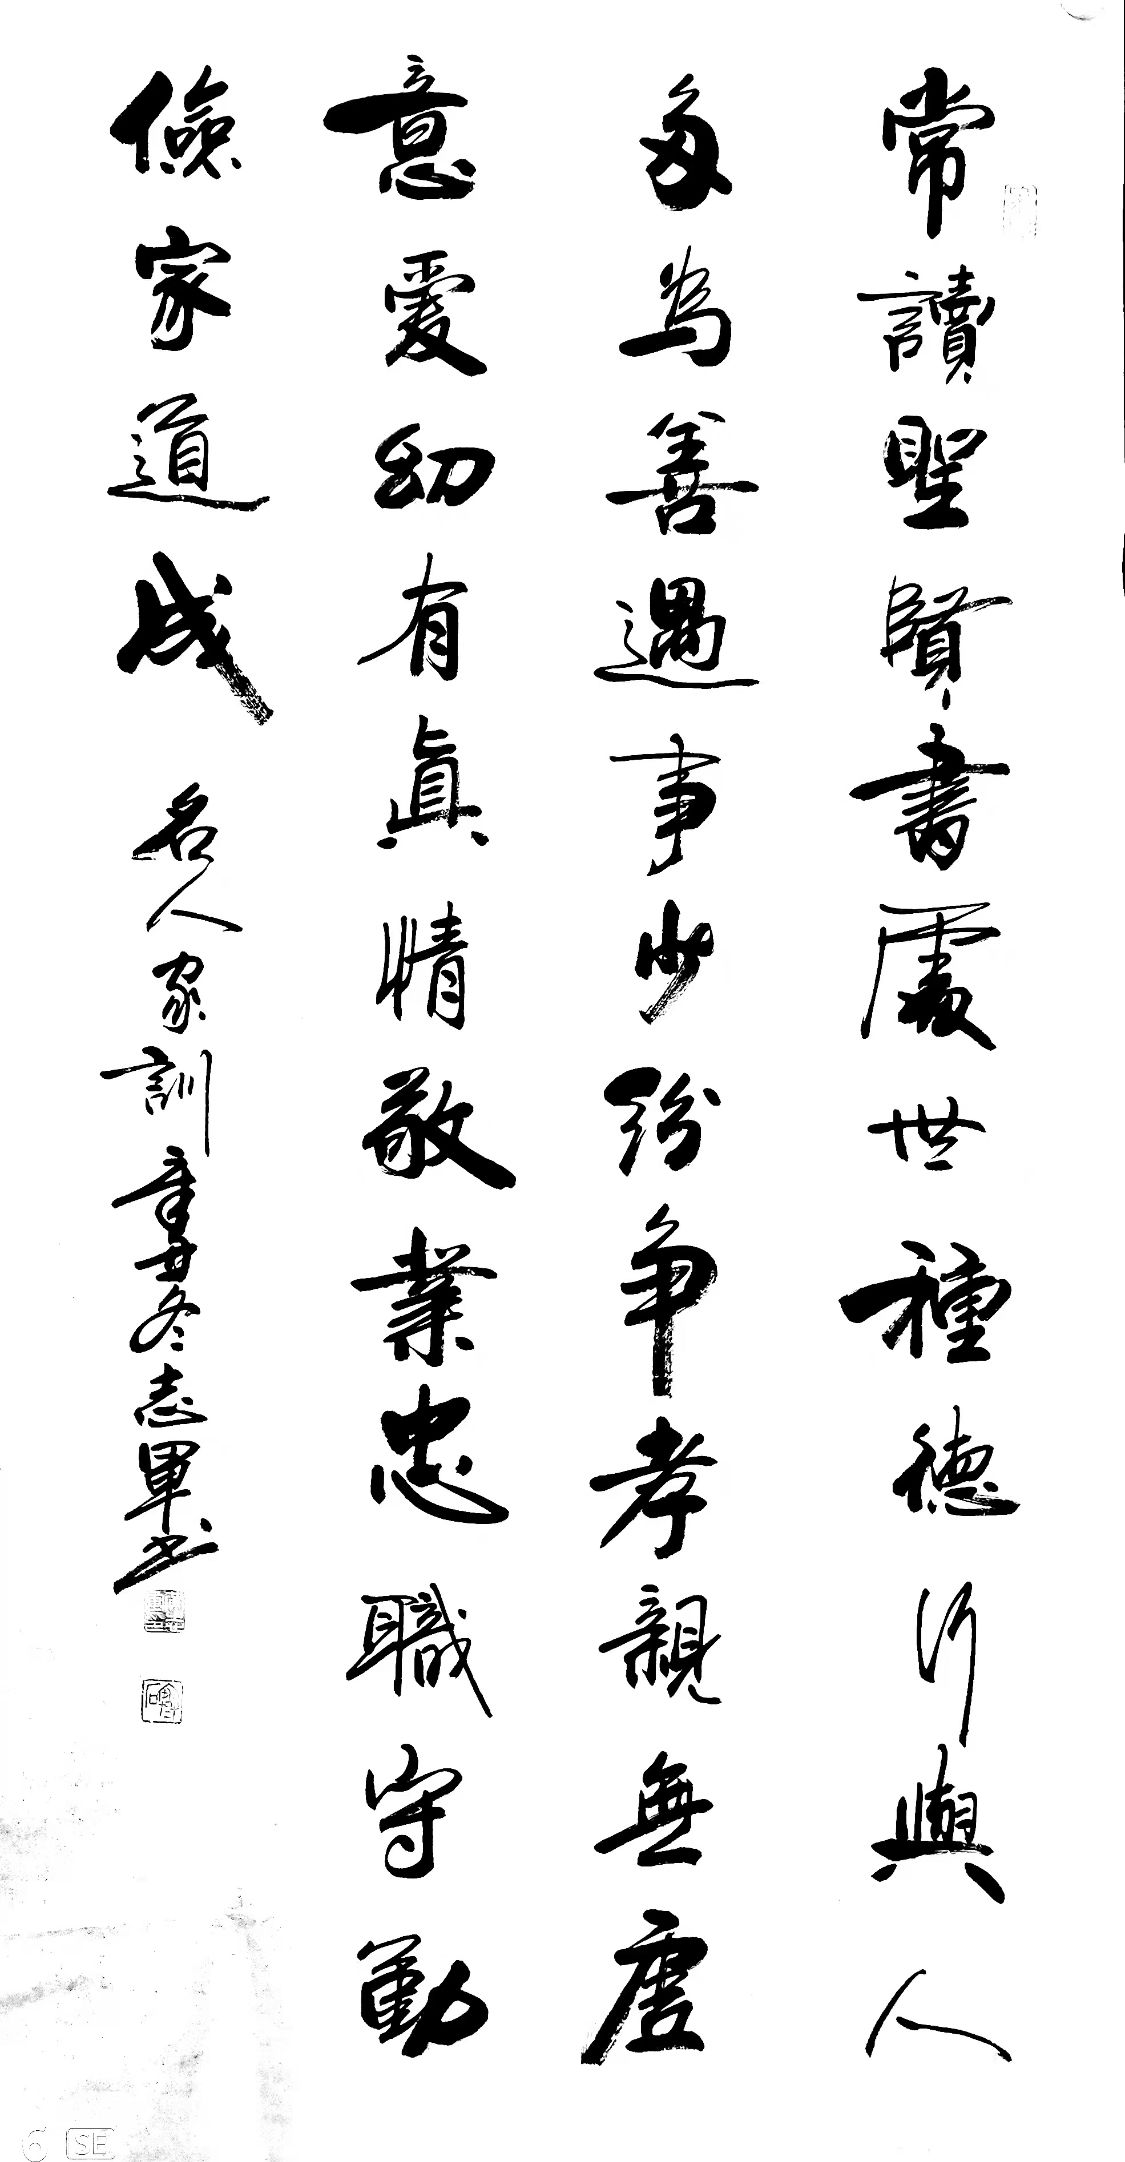 常讀聖賢書處世種德行與人
多為善遇事少紛爭孝親無虛
意愛幼有真情敬業忠職守勤
儉家道成 名人家訓 辛丑冬志軍书
SE